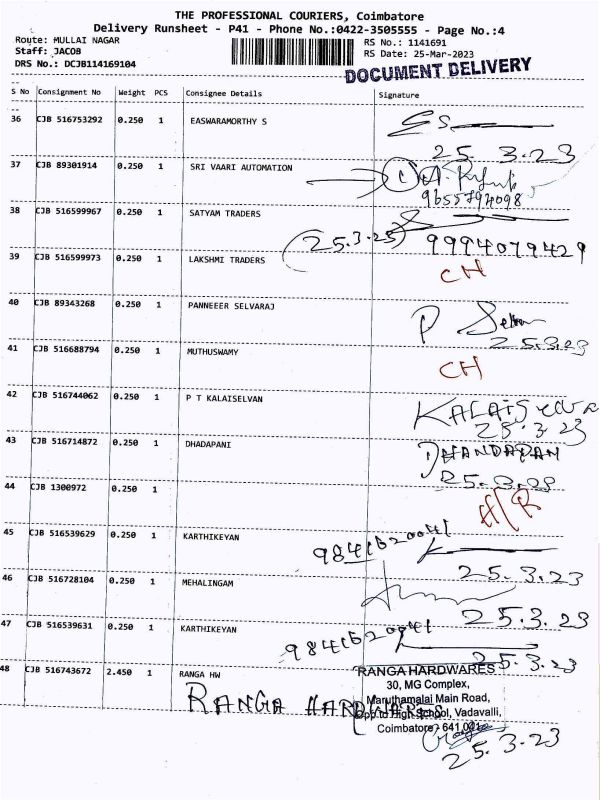 THE PROFESSIONAL COURIERS, Coimbatore
Delivery Runsheet - P41 - Phone No.:0422-3505555 - Page No.:4
Route: MULLAI NAGAR
RS No.: 1141691
Staff: JACOB
RS Date: 25-Mar-2023
DRS No.: DCJB114169104
DOCUMENT DELIVERY
S No Consignment No Weight PCS Consignee Details Signature
36 CJB 516753292 0.250 1 EASWARAMORTHY S
25 3.23
37 CJB 89301914 0.250 1 SRI VAARI AUTOMATION
9655794098
38 CJB 516599967 0.250 1 SATYAM TRADERS
(25.3.23) 9994079429
39 CJB 516599973 0.250 1 LAKSHMI TRADERS
CH
40 CJB 89343268 0.250 1 PANNEEER SELVARAJ
P
25.3.23
41 CJB 516688794 0.250 1 MUTHUSWAMY
CH
42 CJB 516744062 0.250 1 P T KALAISELVAN
25.3 23
43 CJB 516714872 0.250 1 DHADAPANI
DHANDAPAN
25.3.23
44 CJB 1300972 0.250 1
45 CJB 516539629 0.250 1 KARTHIKEYAN
9841620041
25.3.23
46 CJB 516728104 0.250 1 MEHALINGAM
25.3.23
47 CJB 516539631 0.250 1 KARTHIKEYAN
9841620041
25.3.23
48 CJB 516743672 2.450 1 RANGA HW
RANGA HARDWARES
RANGA HARDWARES
30, MG Complex,
Maruthamalai Main Road,
Opp.to High School, Vadavalli,
Coimbatore - 641 041.
25.3.23